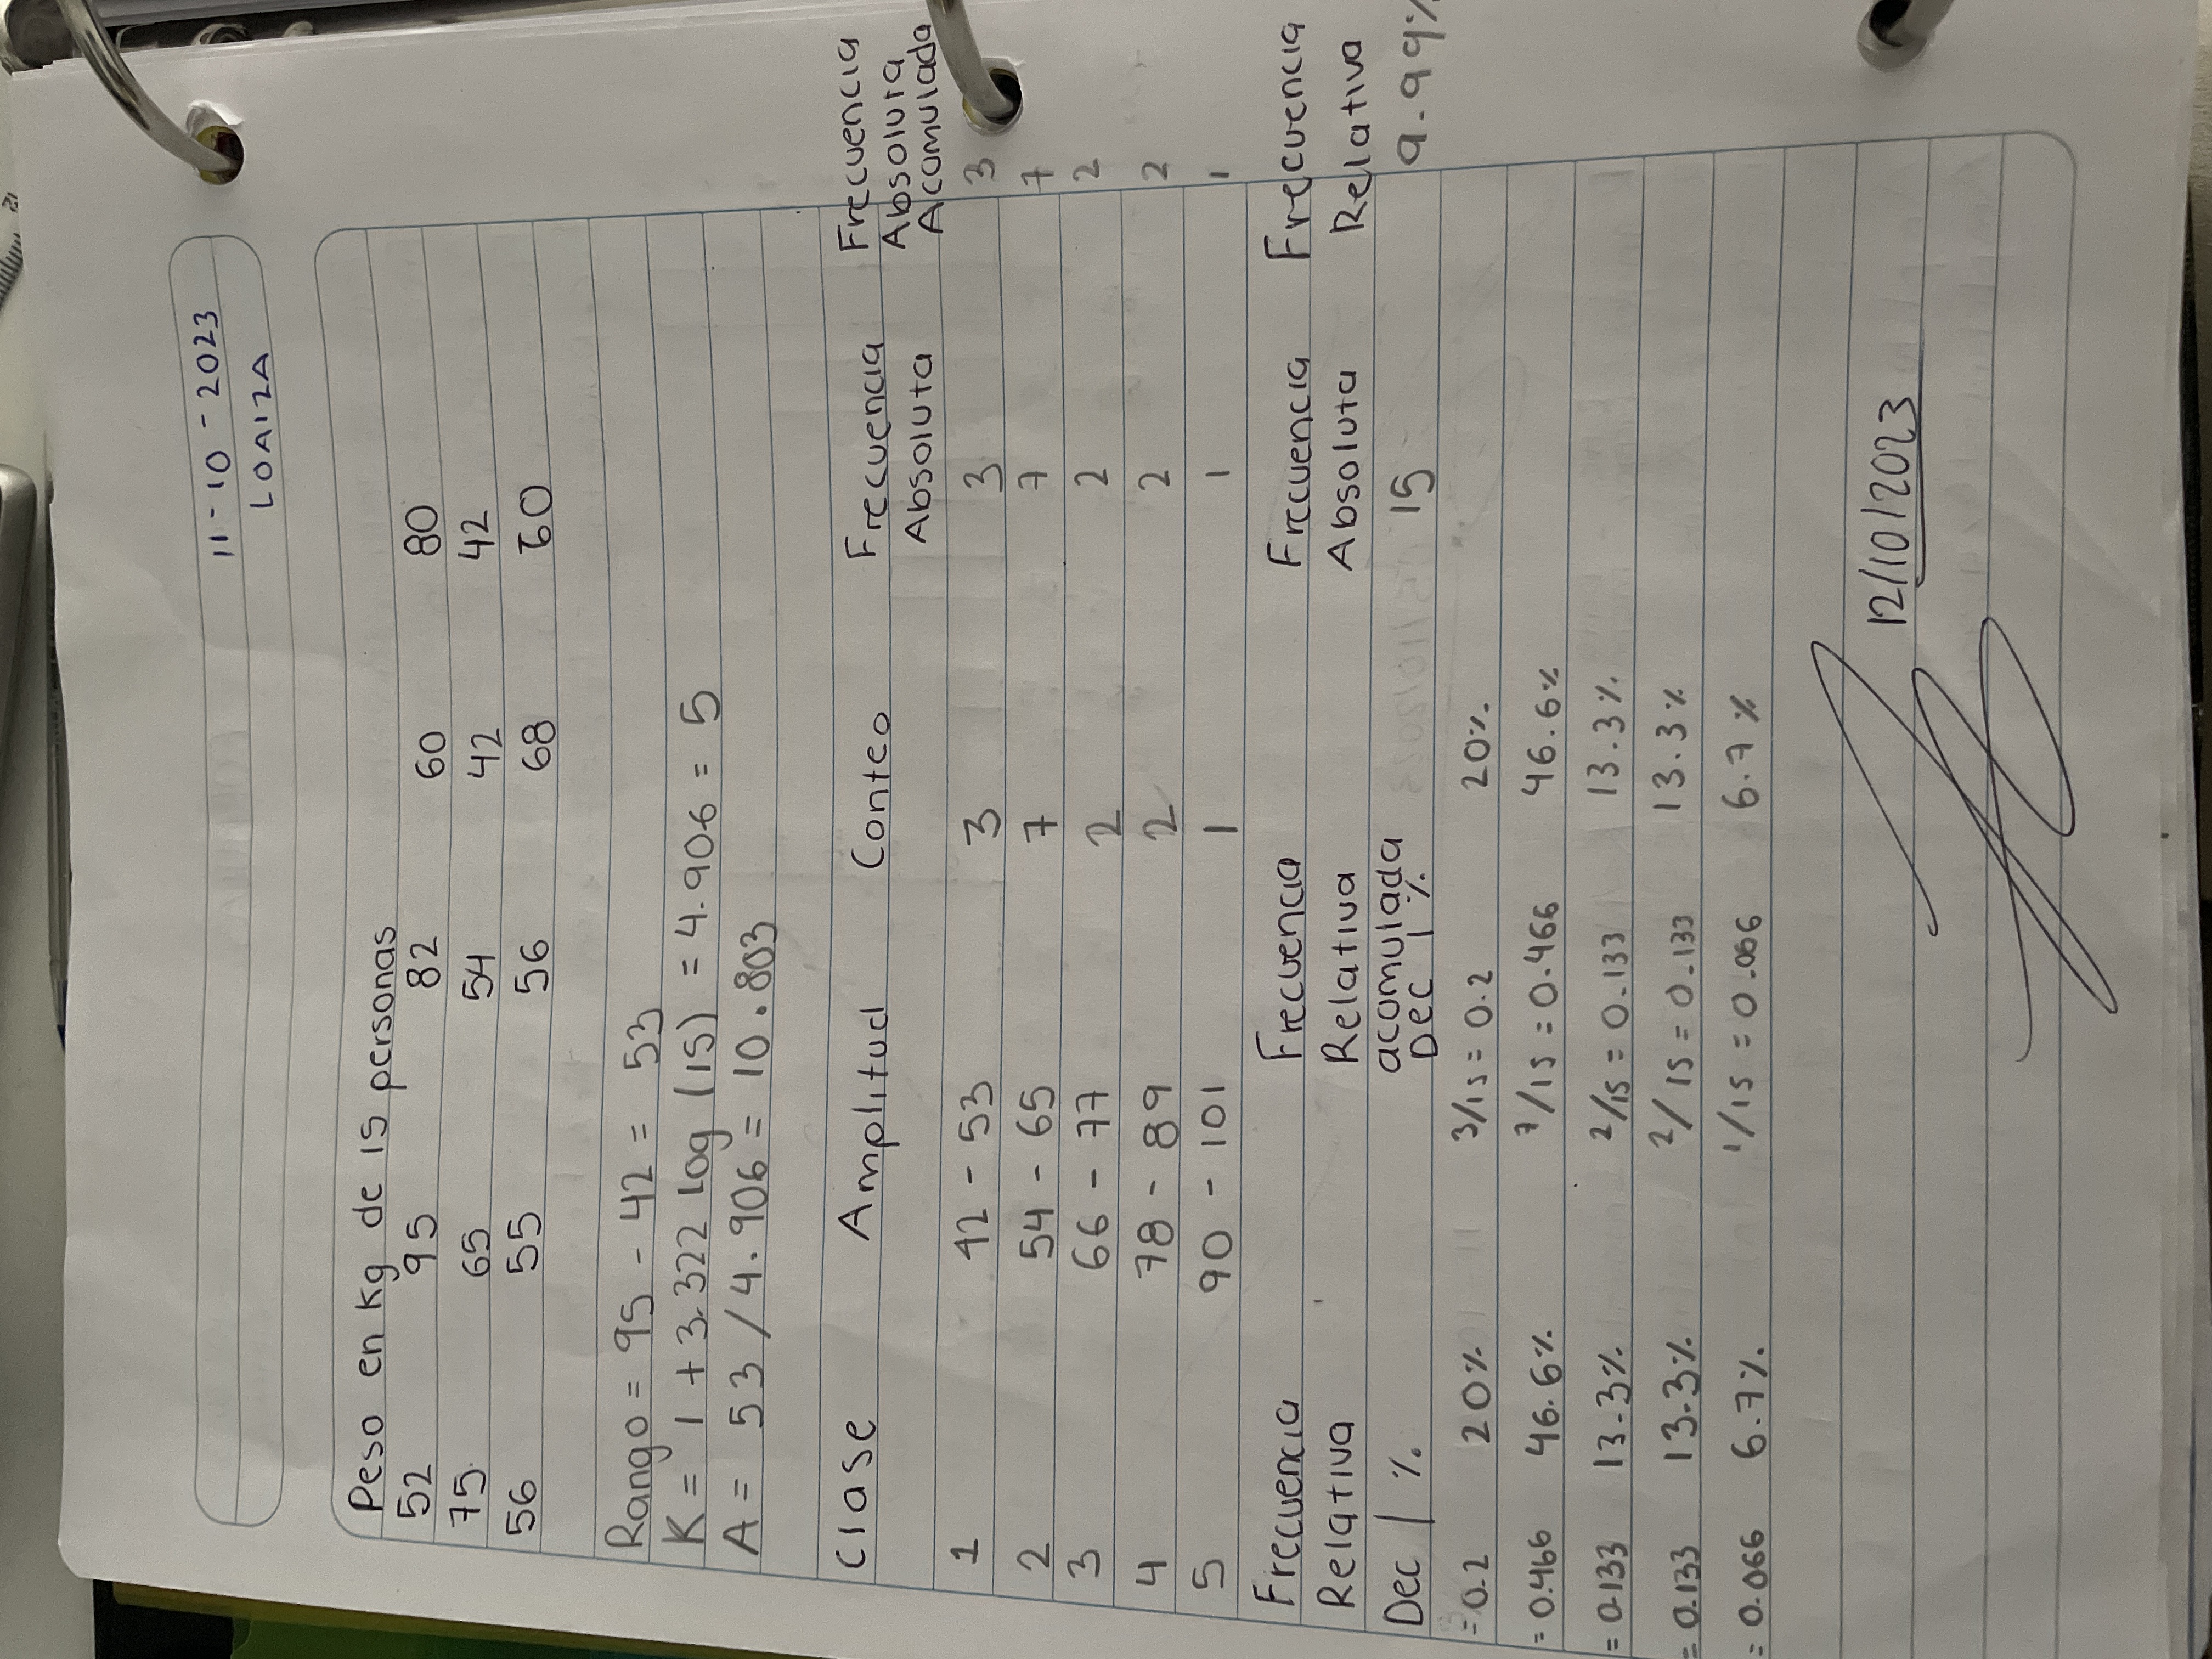 11-10-2023
LOAIZA
Peso en Kg de 15 personas
52 95 82 60 80
75 65 54 42 42
56 55 56 68 60
Rango = 95 - 42 = 53
K = 1 + 3.322 log (15) = 4.906 = 5
A = 53 / 4.906 = 10.803
Clase Amplitud Conteo Frecuencia Absoluta Frecuencia Absoluta Acomulada
1 42 - 53 3 3 3
2 54 - 65 7 7 7
3 66 - 77 2 2 2
4 78 - 89 2 2 2
5 90 - 101 1 1 1
Frecuencia Frecuencia Frecuencia Frecuencia
Relativa Relativa Absoluta Relativa
Dec | % acomulada 15 9.99%
Dec | %
= 0.2 20% 3/15 = 0.2 20%
= 0.466 46.6% 7/15 = 0.466 46.6%
= 0.133 13.3% 2/15 = 0.133 13.3%
= 0.133 13.3% 2/15 = 0.133 13.3%
= 0.066 6.7% 1/15 = 0.066 6.7%
12/10/2023